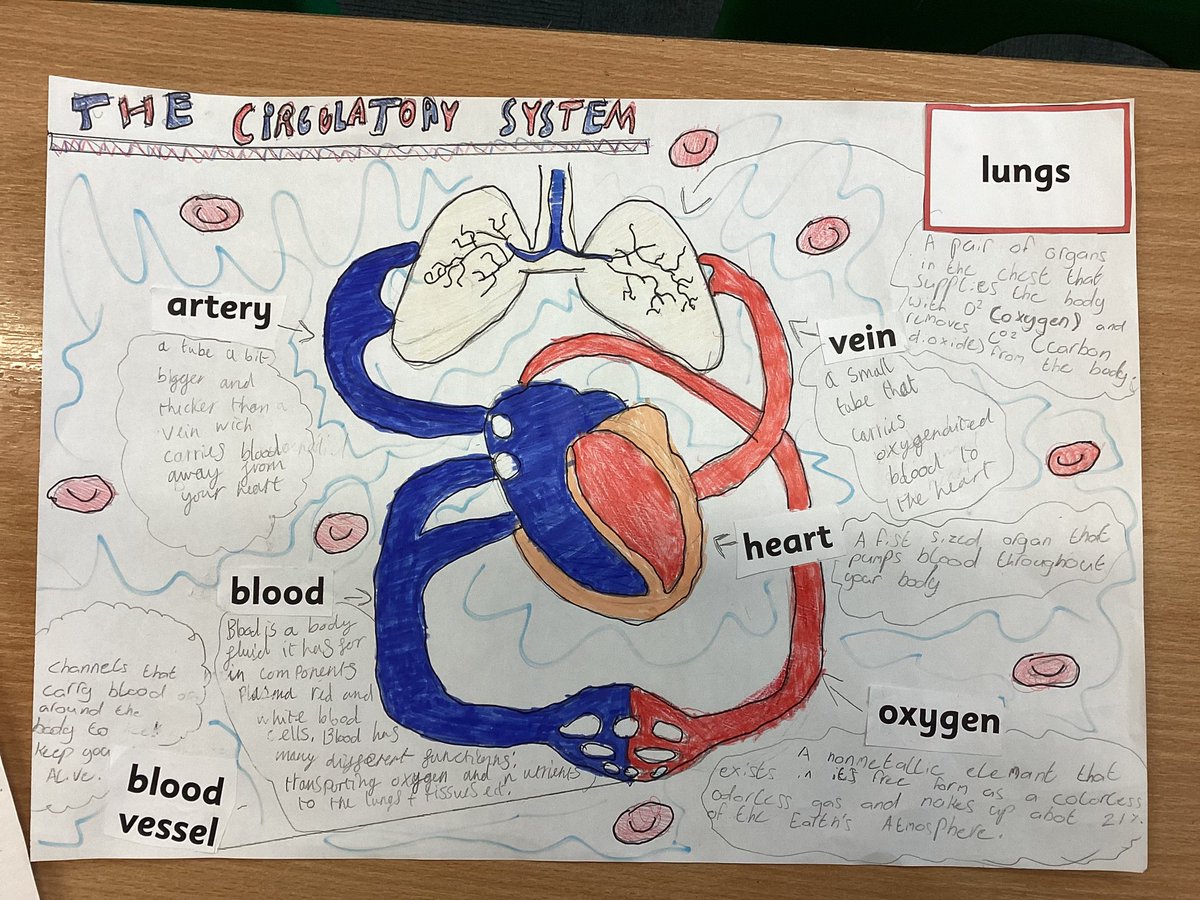 THE CIRCULATORY SYSTEM
lungs
A pair of organs
in the chest that
supplies the body
with O² (oxygen) and
removes CO² (carbon
dioxide) from the body.
artery
a tube a bit
bigger and
thicker than a
vein wich
carrius blood
away from
your heart
vein
a small
tube that
carrius
oxygenaited
blood to
the heart
heart
A fist sized organ that
pumps blood throughout
your body
blood
Blood is a body
fluid it has for
in components
Plasma red and
white blood
cells, Blood has
many different functions:
transporting oxygen and nutrients
to the lungs + tissues
channels that
carry blood
around the
body to
keep you
Alive.
blood
vessel
oxygen
A nonmetallic elemant that
exists in its free form as a colorless
odorless gas and makes up abot 21%
of the Earth's Atmosphere.